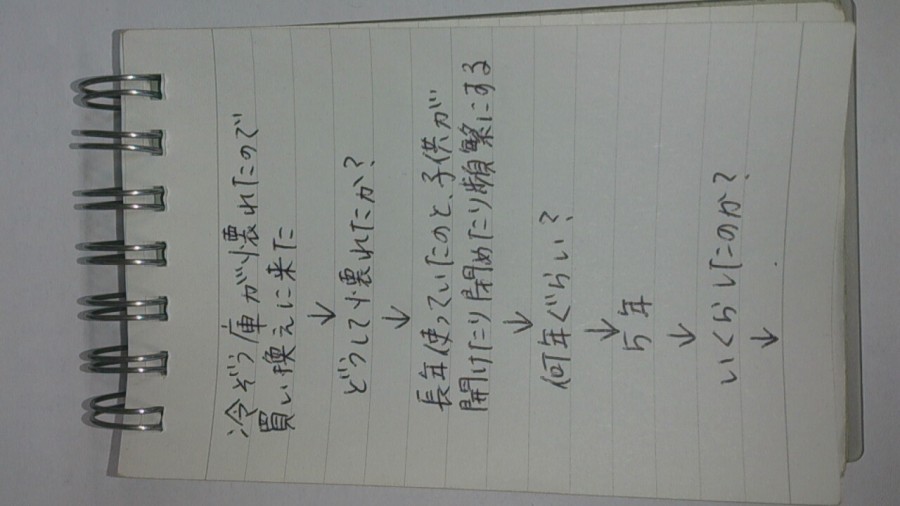 冷ぞう庫が壊れたので
買い換えに来た
↓
どうして壊れたか?
↓
長年使っていたのと、子供が
開けたり閉めたり頻繁にする
↓
何年ぐらい?
↓
5年
↓
いくらしたのか?
↓